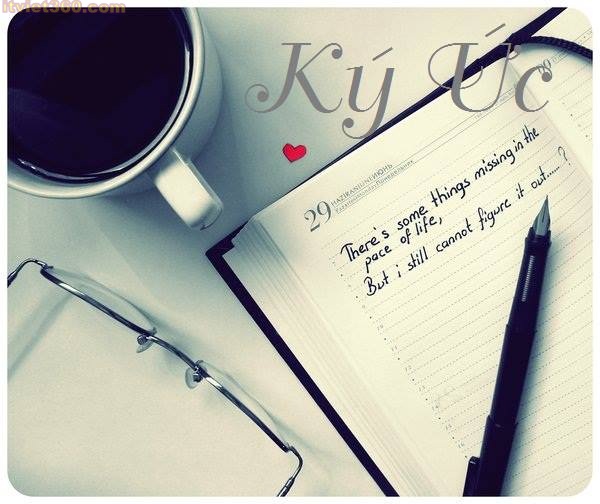 itviet360.com
Ký Ức
29 HAZIRAN|JUNE|ИЮНЬ
There's some things missing in the
pace of life,
But i still cannot figure it out.....?